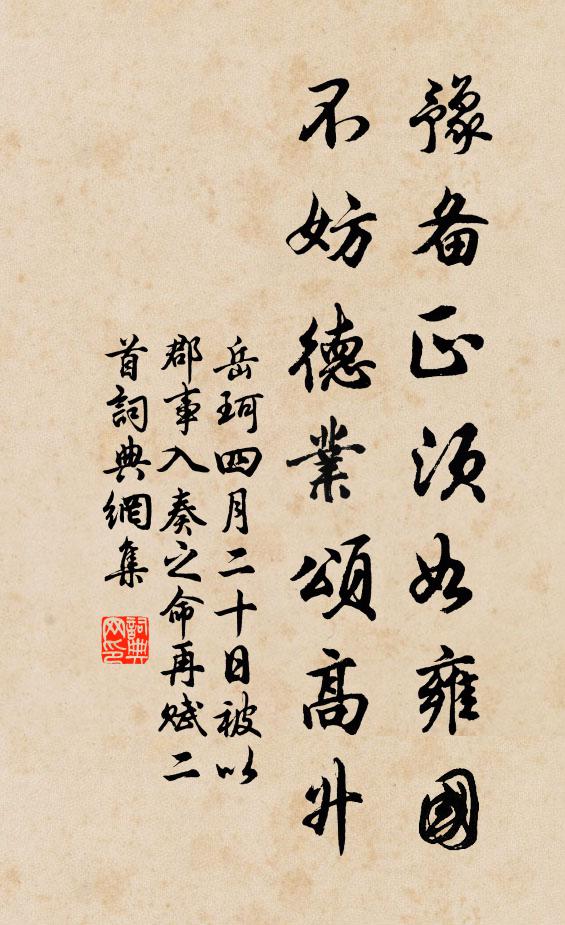 豫备正須如雍國
不妨德業頌高升
岳珂四月二十日被以
郡事入奏之命再赋二
首詞典網集
詞典网印